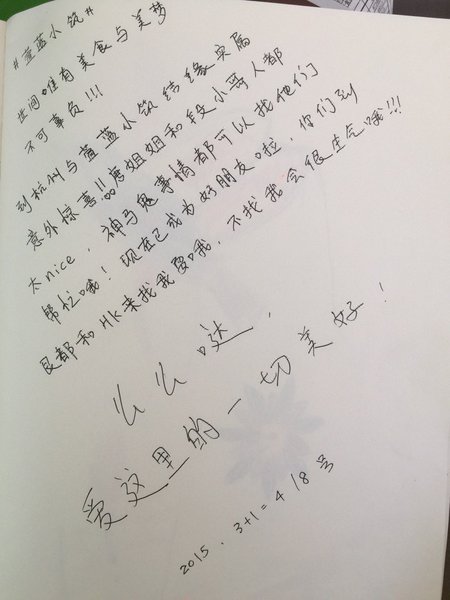 #萱蓝小筑#
世间唯有美食与美梦
不可辜负!!!
到杭州与萱蓝小筑结缘实属
意外惊喜!!唐姐姐和段小哥人都
太nice,神马鬼事情都可以找他们
帮忙哦!现在已成为好朋友啦,你们到
都和HK来找我耍哦,不找我会很生气哦!!!
么么哒,
爱这里的一切美好!
2015. 3+1=4 18号